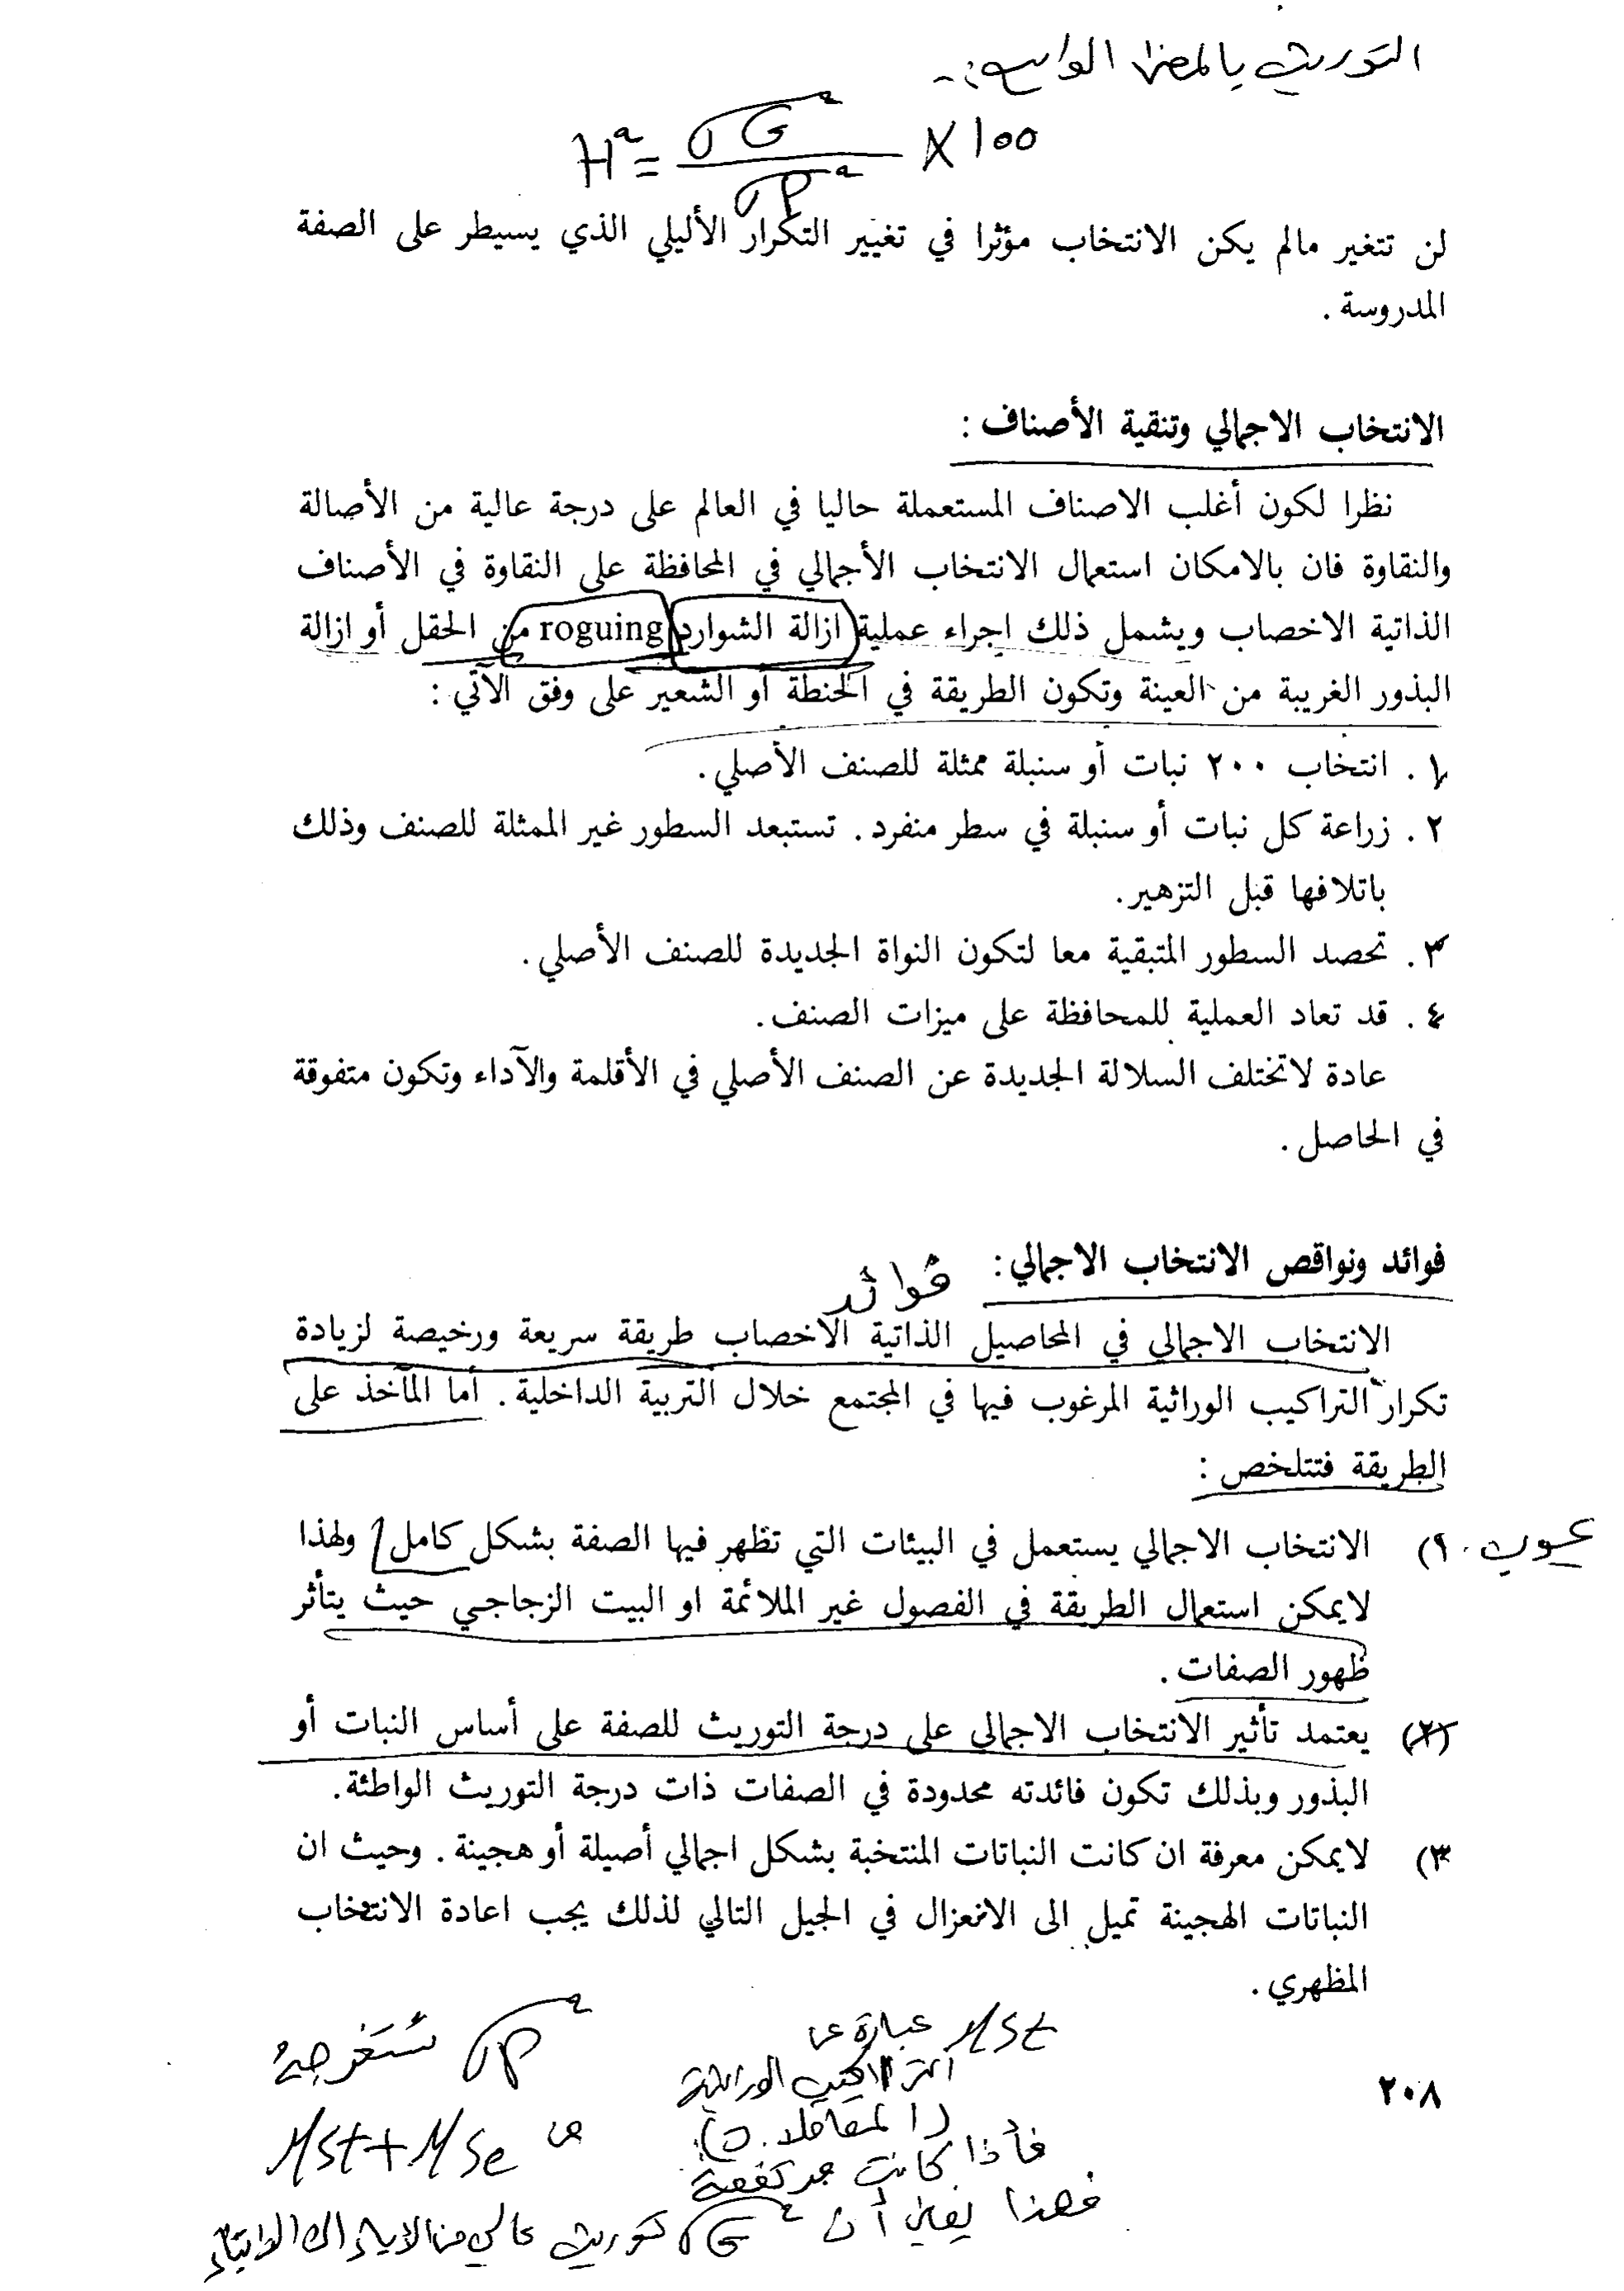 التوريث بالمعنى الواسع :-
H² = σG² / σP² × 100
لن تتغير مالم يكن الانتخاب مؤثرا في تغيير التكرار الأليلي الذي يسيطر على الصفة
المدروسة .
الانتخاب الاجمالي وتنقية الأصناف :
نظرا لكون أغلب الاصناف المستعملة حاليا في العالم على درجة عالية من الأصالة
والنقاوة فان بالامكان استعمال الانتخاب الأجمالي في المحافظة على النقاوة في الأصناف
الذاتية الاخصاب ويشمل ذلك اجراء عملية ازالة الشوارد roguing من الحقل أو ازالة
البذور الغريبة من العينة وتكون الطريقة في الحنطة أو الشعير على وفق الآتي :
١ . انتخاب ٢٠٠ نبات أو سنبلة ممثلة للصنف الأصلي .
٢ . زراعة كل نبات أو سنبلة في سطر منفرد . تستبعد السطور غير الممثلة للصنف وذلك
باتلافها قبل التزهير .
٣ . تحصد السطور المتبقية معا لتكون النواة الجديدة للصنف الأصلي .
٤ . قد تعاد العملية للمحافظة على ميزات الصنف .
عادة لاتختلف السلالة الجديدة عن الصنف الأصلي في الأقلمة والآداء وتكون متفوقة
في الحاصل .
فوائد ونواقص الانتخاب الاجمالي : فوائد
الانتخاب الاجمالي في المحاصيل الذاتية الاخصاب طريقة سريعة ورخيصة لزيادة
تكرار التراكيب الوراثية المرغوب فيها في المجتمع خلال التربية الداخلية . أما المآخذ على
الطريقة فتتلخص :
عيوب ١) الانتخاب الاجمالي يستعمل في البيئات التي تظهر فيها الصفة بشكل كامل ولهذا
لايمكن استعمال الطريقة في الفصول غير الملائمة او البيت الزجاجي حيث يتأثر
ظهور الصفات .
(٢) يعتمد تأثير الانتخاب الاجمالي على درجة التوريث للصفة على أساس النبات أو
البذور وبذلك تكون فائدته محدودة في الصفات ذات درجة التوريث الواطئة .
٣) لايمكن معرفة ان كانت النباتات المنتخبة بشكل اجمالي أصيلة أو هجينة . وحيث ان
النباتات الهجينة تميل الى الانعزال في الجيل التالي لذلك يجب اعادة الانتخاب
المظهري .
MSt عبارة عن
التراكيب الوراثية
(المعاملات)
فأذا كانت مرتفعة
فهذا يعني أن σG² توريث عالي من الاباء الى
σP² نستخرجه
من MSt + MSe
٢٠٨